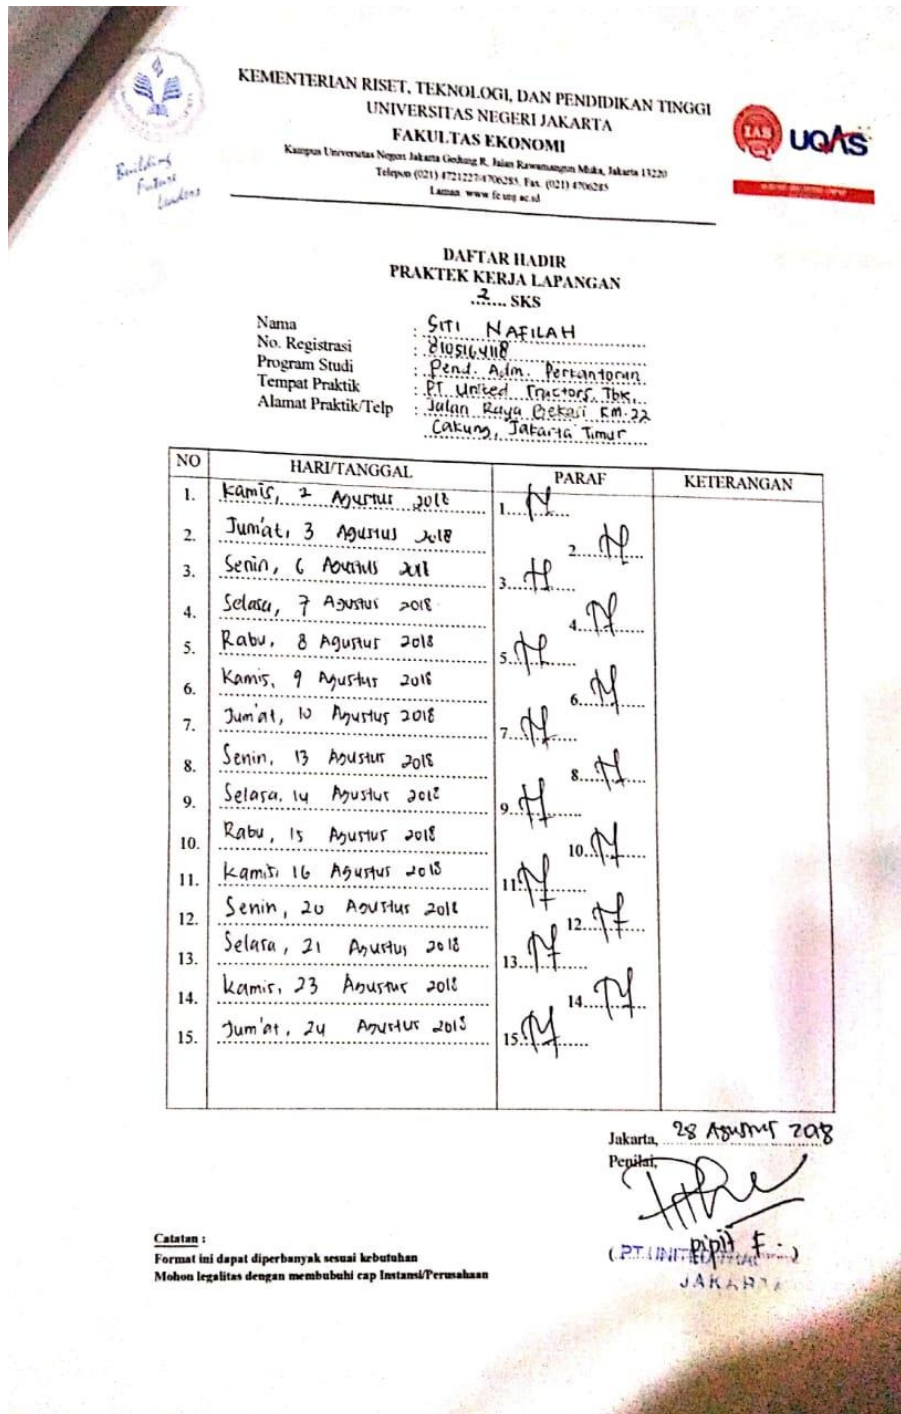 KEMENTERIAN RISET, TEKNOLOGI, DAN PENDIDIKAN TINGGI
UNIVERSITAS NEGERI JAKARTA
FAKULTAS EKONOMI
Kampus Universitas Negeri Jakarta Gedung R, Jalan Rawamangun Muka, Jakarta 13220
Telepon (021) 4721227/4706285, Fax. (021) 4706285
Laman www fe unj ac.id
Building
Future
Leaders
IAS
UQAS
DAFTAR HADIR
PRAKTEK KERJA LAPANGAN
..2.... SKS
Nama : SITI NAFILAH
No. Registrasi : 8105164118
Program Studi : Pend. Adm. Perkantoran
Tempat Praktik : PT United Tractors, Tbk,
Alamat Praktik/Telp : Jalan Raya Bekasi KM.22
Cakung, Jakarta Timur
NO HARI/TANGGAL PARAF KETERANGAN
1. Kamis, 2 Agustus 2018 1.
2. Jum'at, 3 Agustus 2018 2.
3. Senin, 6 Agustus 2018 3.
4. Selasa, 7 Agustus 2018 4.
5. Rabu, 8 Agustus 2018 5.
6. Kamis, 9 Agustus 2018 6.
7. Jum'at, 10 Agustus 2018 7.
8. Senin, 13 Agustus 2018 8.
9. Selasa, 14 Agustus 2018 9.
10. Rabu, 15 Agustus 2018 10.
11. Kamis, 16 Agustus 2018 11.
12. Senin, 20 Agustus 2018 12.
13. Selasa, 21 Agustus 2018 13.
14. Kamis, 23 Agustus 2018 14.
15. Jum'at, 24 Agustus 2018 15.
Jakarta, 28 Agustus 2018
Penilai,
( Pipit F. )
PT UNITED
JAKARTA
Catatan :
Format ini dapat diperbanyak sesuai kebutuhan
Mohon legalitas dengan membubuhi cap Instansi/Perusahaan